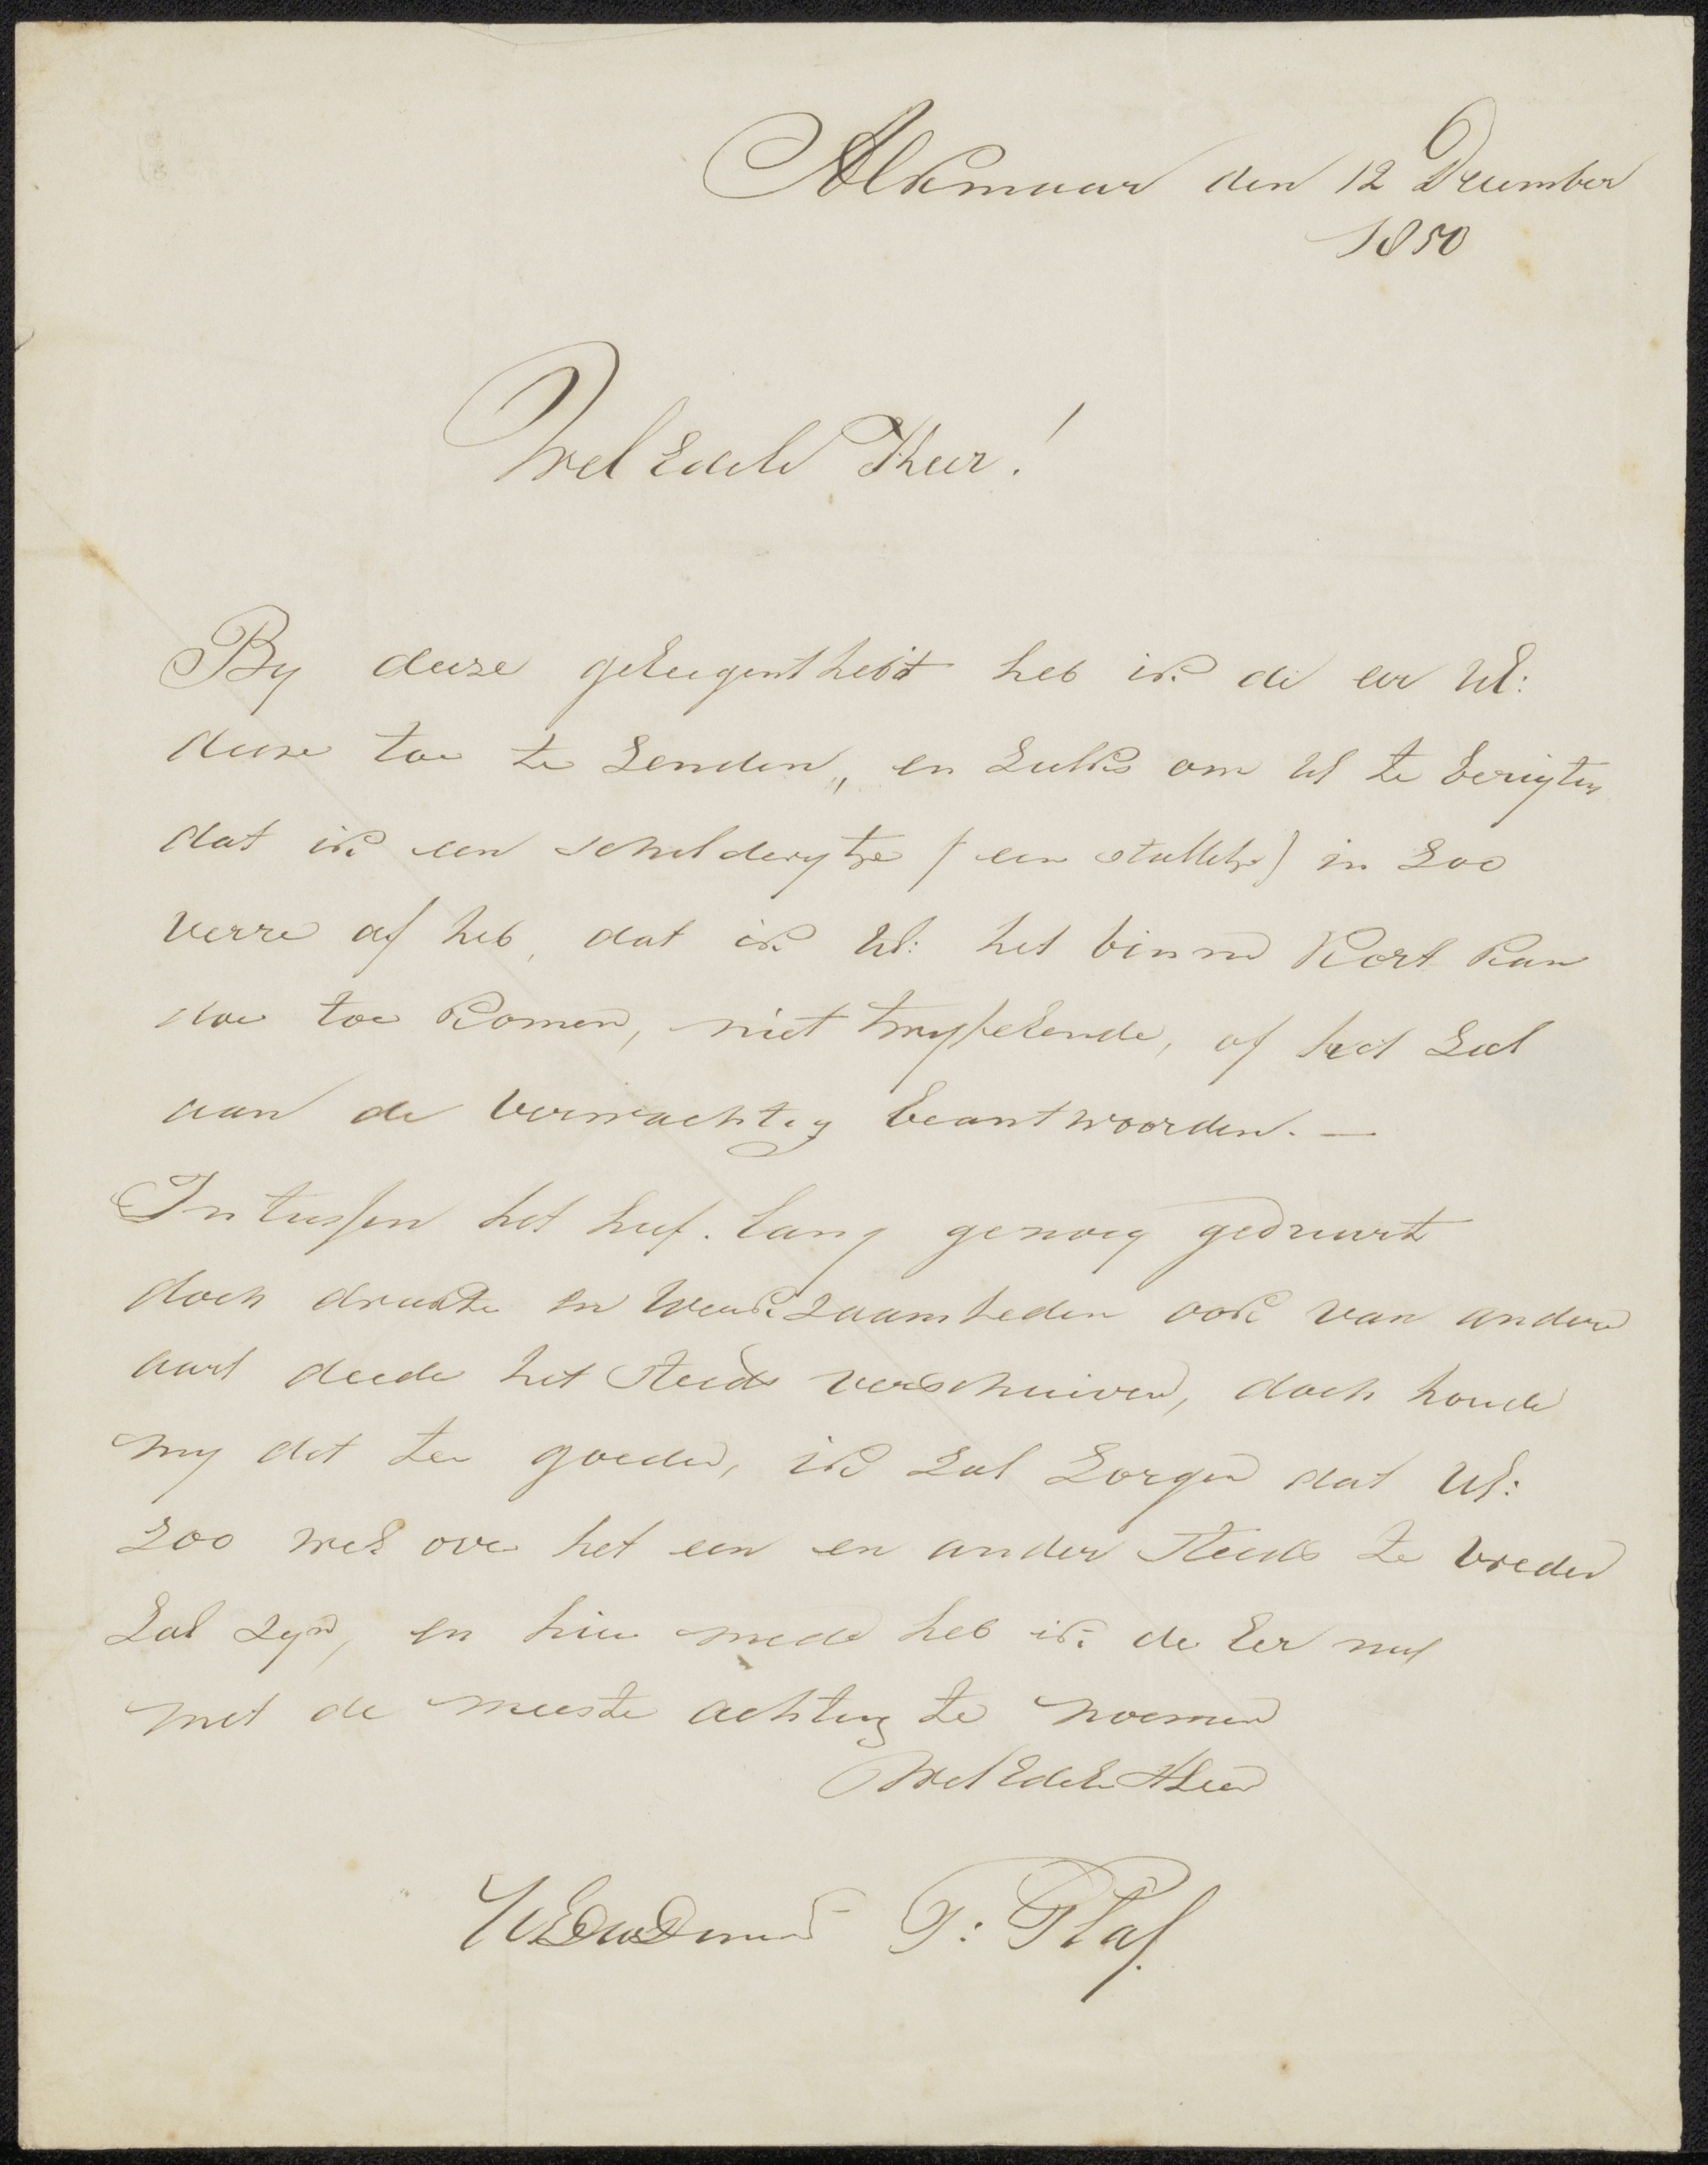 Alkmaar den 12 December
1850
Wel Edele Heer!
By deeze geleegentheid heb ik de eer UE:
deeze toe te zenden, en zulks om UE te berigten
dat ik een schilderytje (een stalletje) in zoo
verre af heb, dat ik UE: het binnen kort kan
doe toe komen, niet twyfelende, of het zal
aan de verwachting beantwoorden. —
Intussen het heef. lang genoeg geduurt
doch drukte en werkzaamheden ook van andere
aart deede het steeds verschuiven, doch houde
my dit ten goede, ik zal zorgen dat UE:
zoo wel over het een en ander steeds te vreden
zal zyn, en hier mede heb ik de Eer my
met de meeste achting te noemen
Wel Edele Heer
UEDwDienaar P: Plas.